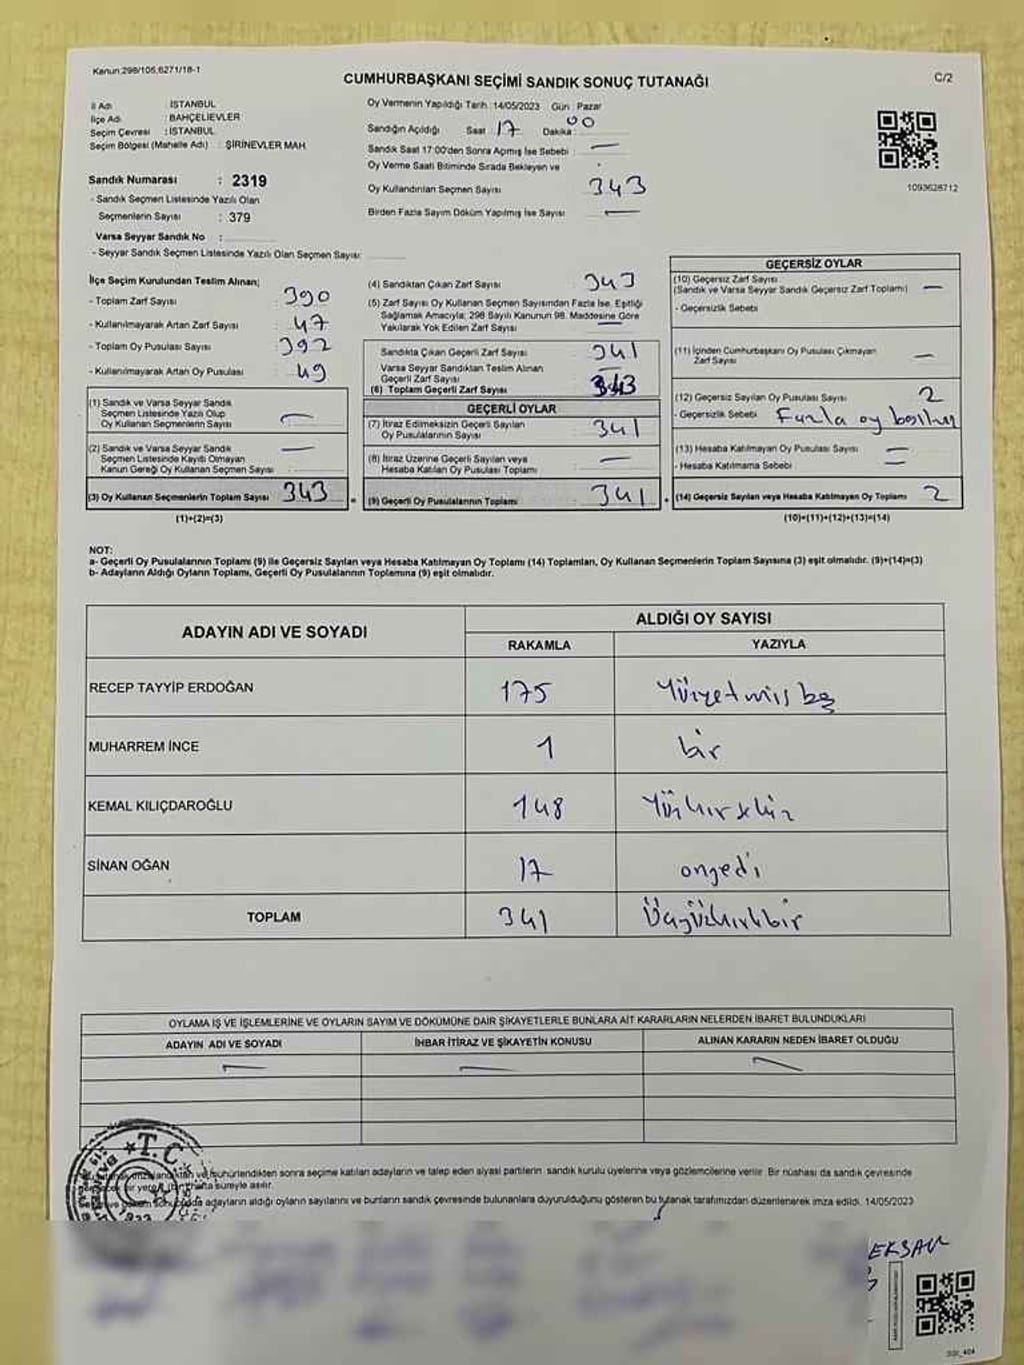 Kanun:298/105,6271/18-1
CUMHURBAŞKANI SEÇİMİ SANDIK SONUÇ TUTANAĞI
C/2
İl Adı : İSTANBUL
İlçe Adı : BAHÇELİEVLER
Seçim Çevresi : İSTANBUL
Seçim Bölgesi (Mahalle Adı) : ŞİRİNEVLER MAH.
Sandık Numarası : 2319
- Sandık Seçmen Listesinde Yazılı Olan
Seçmenlerin Sayısı : 379
Varsa Seyyar Sandık No :
- Seyyar Sandık Seçmen Listesinde Yazılı Olan Seçmen Sayısı:
Oy Vermenin Yapıldığı Tarih :14/05/2023 Gün : Pazar
Sandığın Açıldığı Saat : 17 Dakika : 00
Sandık Saat 17:00'den Sonra Açılmış İse Sebebi : —
Oy Verme Saati Bitiminde Sırada Bekleyen ve
Oy Kullandırılan Seçmen Sayısı : 343
Birden Fazla Sayım Döküm Yapılmış İse Sayısı : —
1093628712
İlçe Seçim Kurulundan Teslim Alınan;
- Toplam Zarf Sayısı : 390
- Kullanılmayarak Artan Zarf Sayısı : 47
- Toplam Oy Pusulası Sayısı : 392
- Kullanılmayarak Artan Oy Pusulası : 49
(1) Sandık ve Varsa Seyyar Sandık
Seçmen Listesinde Yazılı Olup
Oy Kullanan Seçmenlerin Sayısı : —
(2) Sandık ve Varsa Seyyar Sandık
Seçmen Listesinde Kayıtlı Olmayan
Kanun Gereği Oy Kullanan Seçmen Sayısı : —
(3) Oy Kullanan Seçmenlerin Toplam Sayısı : 343
(1)+(2)=(3)
(4) Sandıktan Çıkan Zarf Sayısı : 343
(5) Zarf Sayısı Oy Kullanan Seçmen Sayısından Fazla İse, Eşitliği
Sağlamak Amacıyla; 298 Sayılı Kanunun 98. Maddesine Göre
Yakılarak Yok Edilen Zarf Sayısı : —
Sandıkta Çıkan Geçerli Zarf Sayısı : 341
Varsa Seyyar Sandıktan Teslim Alınan
Geçerli Zarf Sayısı : —
(6) Toplam Geçerli Zarf Sayısı : 343
GEÇERLİ OYLAR
(7) İtiraz Edilmeksizin Geçerli Sayılan
Oy Pusulalarının Sayısı : 341
(8) İtiraz Üzerine Geçerli Sayılan veya
Hesaba Katılan Oy Pusulası Toplamı : —
(9) Geçerli Oy Pusulalarının Toplamı : 341
GEÇERSİZ OYLAR
(10) Geçersiz Zarf Sayısı
(Sandık ve Varsa Seyyar Sandık Geçersiz Zarf Toplamı) : —
- Geçersizlik Sebebi :
(11) İçinden Cumhurbaşkanı Oy Pusulası Çıkmayan
Zarf Sayısı : —
(12) Geçersiz Sayılan Oy Pusulası Sayısı : 2
- Geçersizlik Sebebi : Fazla oy
(13) Hesaba Katılmayan Oy Pusulası Sayısı : —
- Hesaba Katılmama Sebebi : —
(14) Geçersiz Sayılan veya Hesaba Katılmayan Oy Toplamı : 2
(10)+(11)+(12)+(13)=(14)
NOT:
a- Geçerli Oy Pusulalarının Toplamı (9) ile Geçersiz Sayılan veya Hesaba Katılmayan Oy Toplamı (14) Toplamları, Oy Kullanan Seçmenlerin Toplam Sayısına (3) eşit olmalıdır. (9)+(14)=(3)
b- Adayların Aldığı Oyların Toplamı, Geçerli Oy Pusulalarının Toplamına (9) eşit olmalıdır.
ADAYIN ADI VE SOYADI ALDIĞI OY SAYISI
RAKAMLA YAZIYLA
RECEP TAYYİP ERDOĞAN 175 Yüzyetmiş beş
MUHARREM İNCE 1 bir
KEMAL KILIÇDAROĞLU 148 Yüzkırksekiz
SİNAN OĞAN 17 onyedi
TOPLAM 341 Üçyüzkırkbir
OYLAMA İŞ VE İŞLEMLERİNE VE OYLARIN SAYIM VE DÖKÜMÜNE DAİR ŞİKAYETLERLE BUNLARA AİT KARARLARIN NELERDEN İBARET BULUNDUKLARI
ADAYIN ADI VE SOYADI İHBAR İTİRAZ VE ŞİKAYETİN KONUSU ALINAN KARARIN NEDEN İBARET OLDUĞU
— — —
T.C.
mühürlendikten sonra seçime katılan adayların ve talep eden siyasi partilerin sandık kurulu üyelerine veya gözlemcilerine verilir. Bir nüshası da sandık çevresinde
bir hafta süreyle asılır.
adayların aldığı oyların sayılarını ve bunların sandık çevresinde bulunanlara duyurulduğunu gösteren bu tutanak tarafımızdan düzenlenerek imza edildi. 14/05/2023